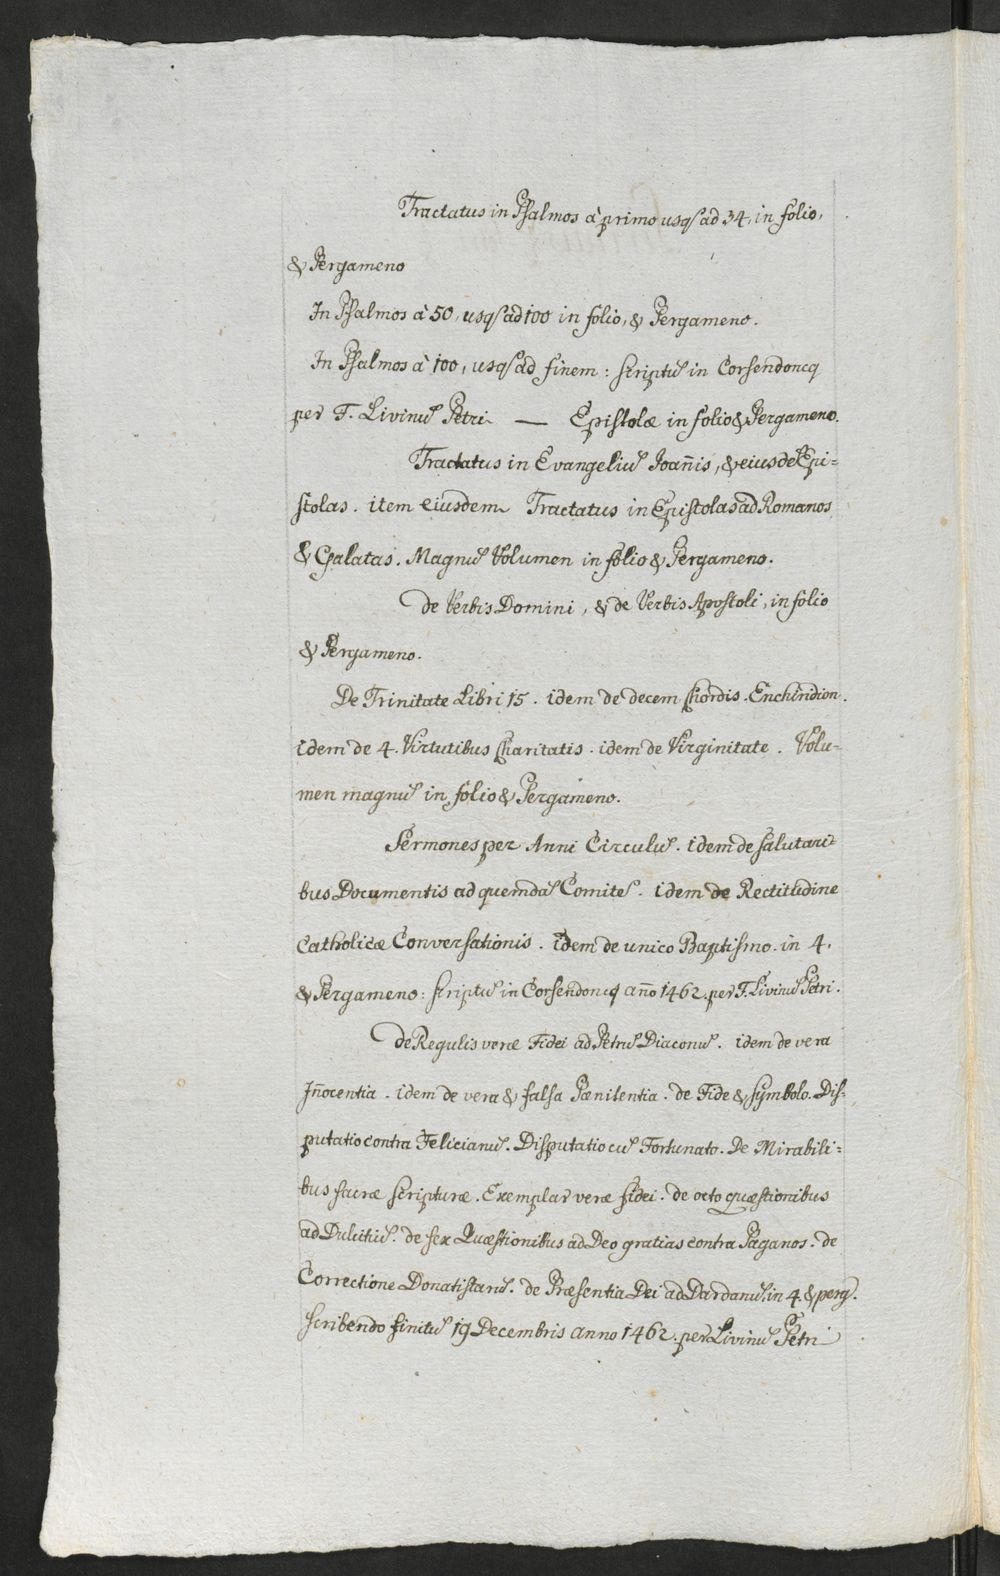 Tractatus in Psalmos à primo usq ad 34, in folio,
& Pergameno
In Psalmos à 50, usq ad 100 in folio, & Pergameno.
In Psalmos à 100, usq ad finem : scriptū in Corsendoncq
per F. Livinū Petri — Epistolæ in folio & Pergameno.
Tractatus in Evangeliū Joan̄is, & eiusdē Epi=
stolas. item eiusdem Tractatus in Epistolas ad Romanos
& Galatas. Magnū Volumen in folio & Pergameno.
de Verbis Domini, & de Verbis Apostoli, in folio
& Pergameno.
De Trinitate Libri 15. idem de decem Chordis. Enchiridion.
idem de 4. Virtutibus Charitatis. idem de Virginitate. Volu-
men magnū in folio & Pergameno.
Sermones per Anni Circulū. idem de salutari=
bus Documentis ad quemdā Comitē. idem de Rectitudine
Catholicæ Conversationis. idem de unico Baptismo. in 4.
& Pergameno: scriptū in Corsendoncq an̄o 1462. per F. Livinū Petri.
de Regulis veræ Fidei ad Petrū Diaconū. idem de vera
In̄ocentia. idem de vera & falsa Pænitentia. de Fide & Symbolo. Dis=
putatio contra Felicianū. Disputatio cū Fortunato. De Mirabili=
bus sacræ scripturæ. Exemplar veræ fidei. de octo quæstionibus
ad Dulcitiū. de sex Quæstionibus ad Deo gratias contra Paganos. de
Correctione Donatistarū. de Præsentia Dei ad Dardanū. in 4. & perg.
scribendo finitū 19 Decembris anno 1462. per Livinū Petri